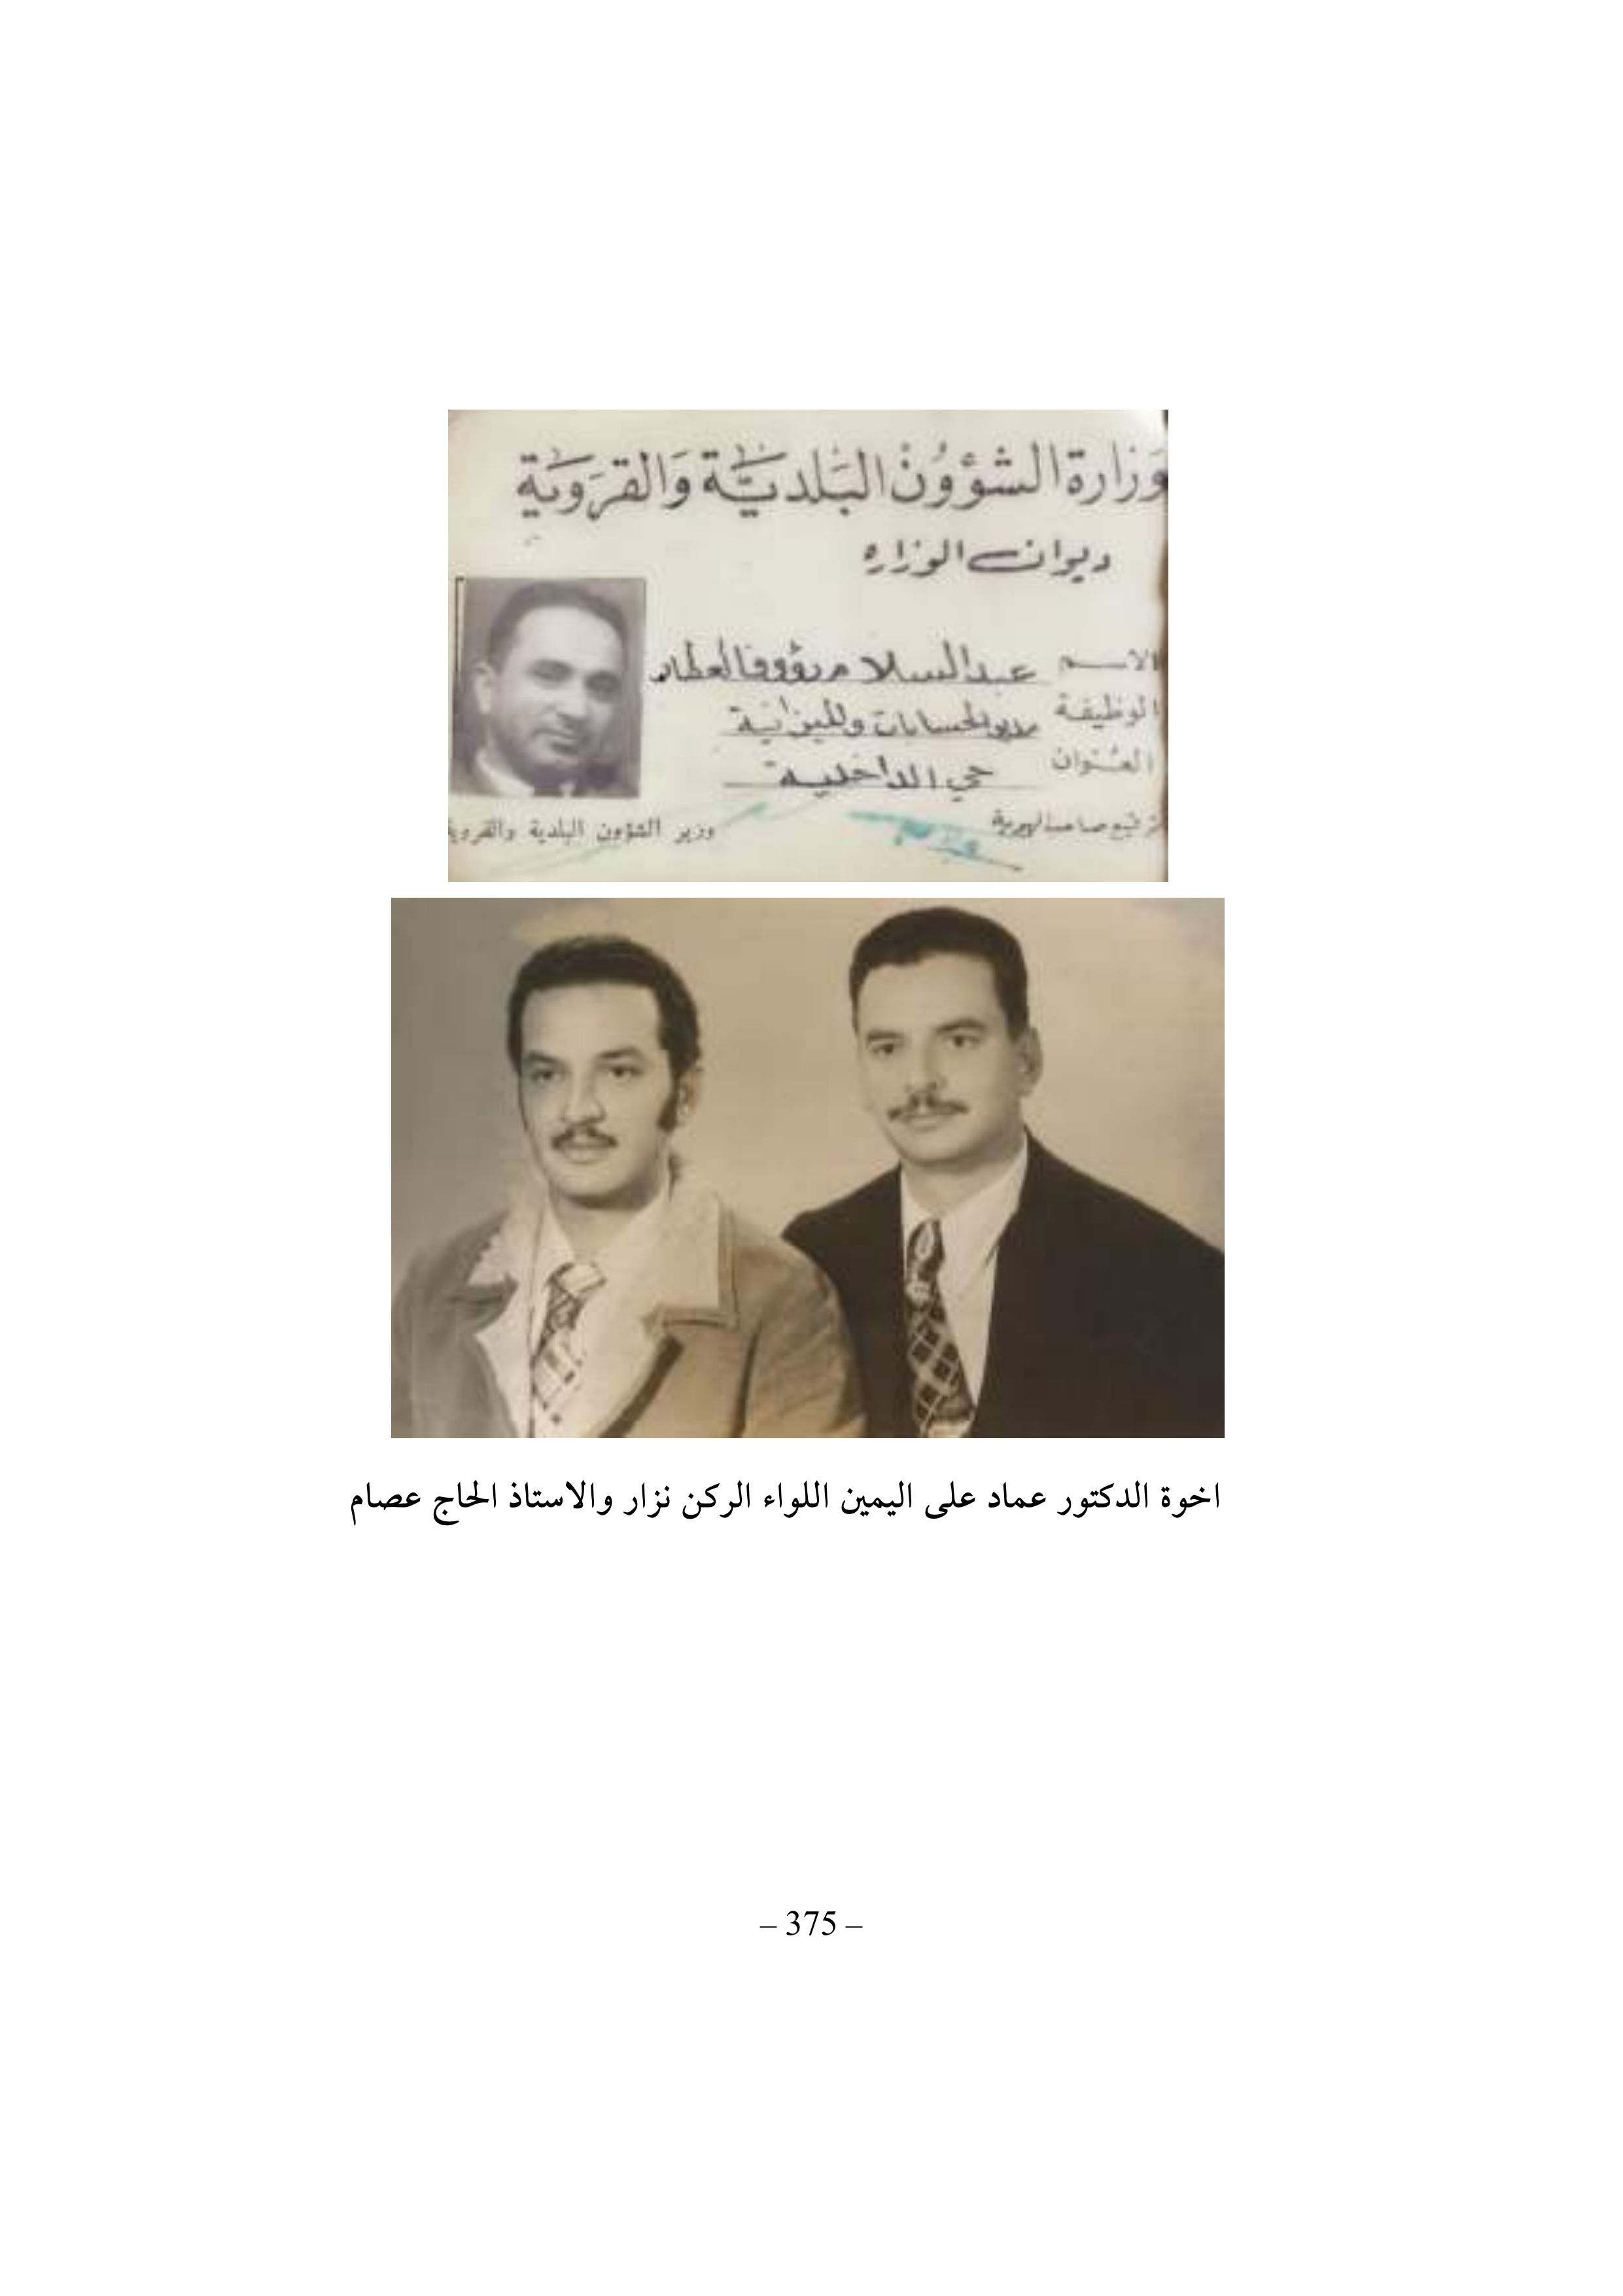 وَزارة الشؤوُن البَلديَّة وَالقرَوية
ديوان الوزاره
الاسم عبدالسلام رؤوف العطار
الوظيفة مدير الحسابات والميزانية
العُنوان حي الداخلية
توقيع صاحب الهوية
وزير الشؤون البلدية والقروية
اخوة الدكتور عماد على اليمين اللواء الركن نزار والاستاذ الحاج عصام
– 375 –